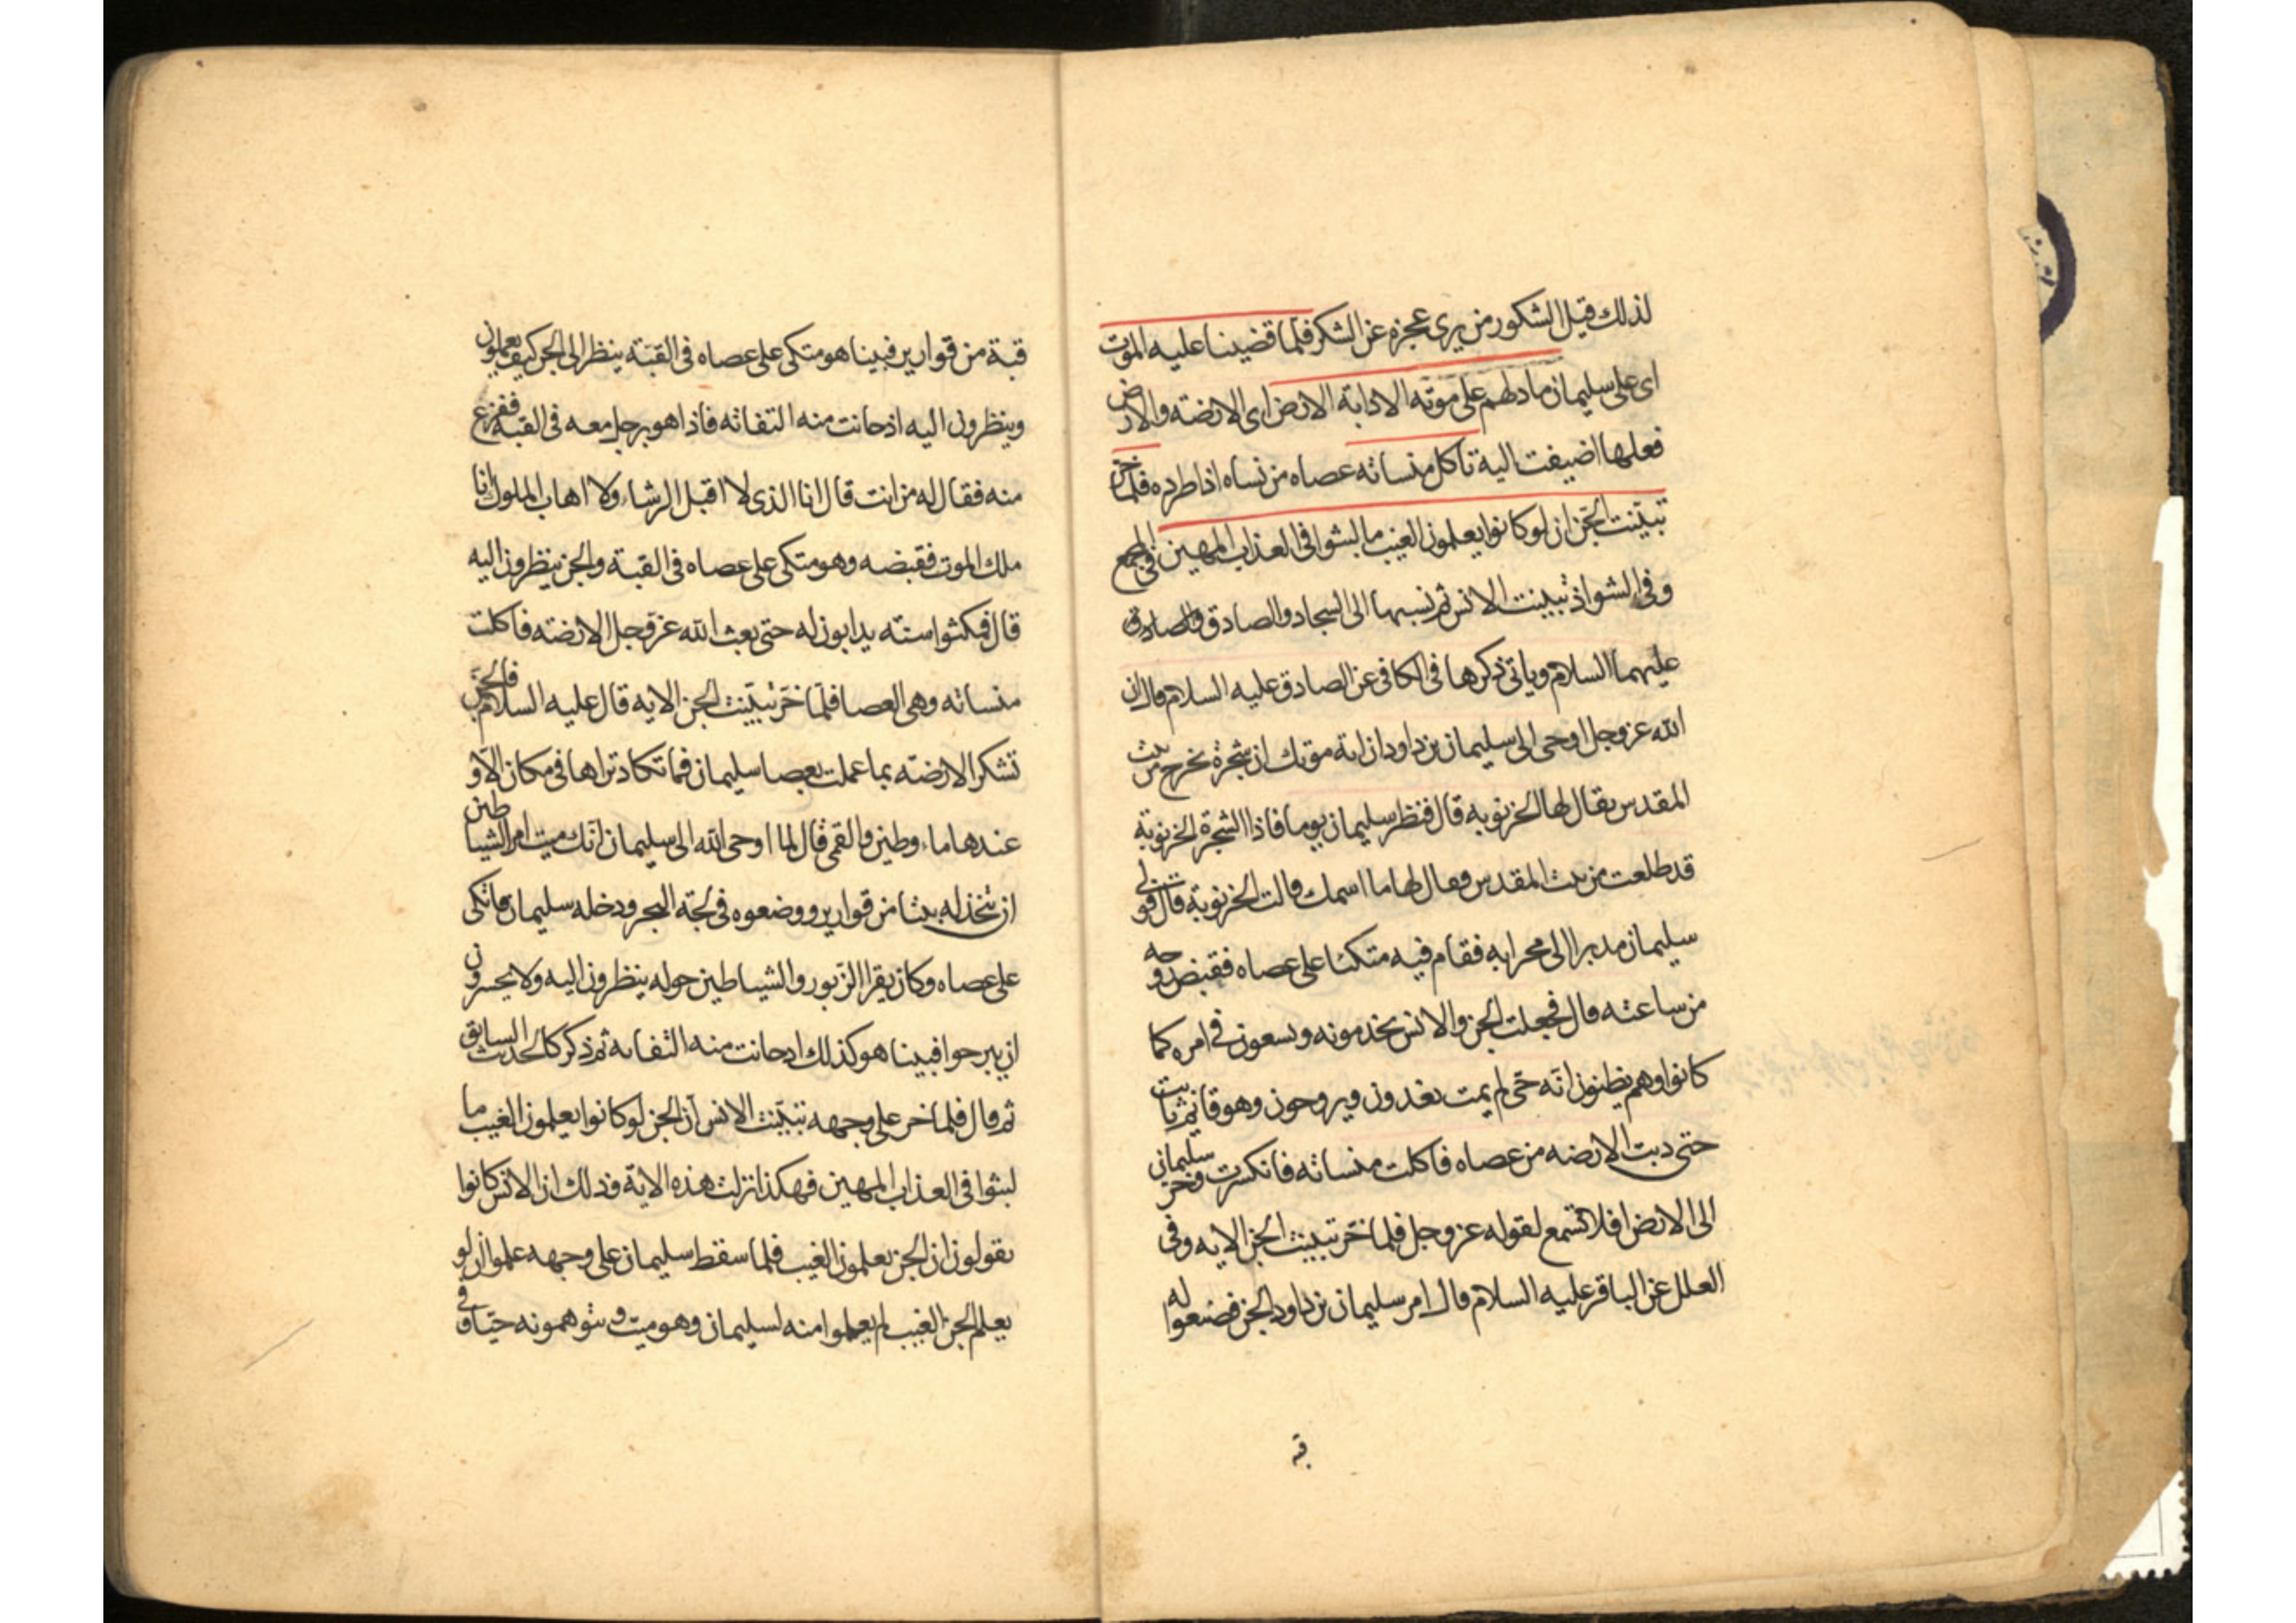 لذلك قيل الشكور من يرى عجزه عن الشكر فلما قضينا عليه الموت
اى على سليمان ما دلهم على موته الا دابة الارض اى الارضة والارض
فعلها اضيفت اليه تاكل منساته عصاه من نساه اذا طرده فلما خر
تبينت الجن ان لو كانوا يعلمون الغيب ما لبثوا فى العذاب المهين فى المجمع
وفى الشواذ تبينت الانس ثم نسبها الى السجاد والصادق
عليهما السلام وياتى ذكرها فى الكافى عن الصادق عليه السلام قال ان
الله عز وجل اوحى الى سليمان بن داود ان اية موتك ان شجرة تخرج من بيت
المقدس يقال لها الخرنوبه قال فنظر سليمان يوما فاذا الشجرة الخرنوبة
قد طلعت من بيت المقدس فقال لها ما اسمك قالت الخرنوبة قال فولى
سليمان مدبرا الى محرابه فقام فيه متكئا على عصاه فقبض روحه
من ساعته قال فجعلت الجن والانس يخدمونه ويسعون فى امره كما
كانوا وهم يظنون انه حى لم يمت يغدون ويروحون وهو قائم ثابت
حتى دبت الارضه من عصاه فاكلت منساته فانكسرت وخر سليمان
الى الارض افلا تسمع لقوله عز وجل فلما خر تبينت الجن الايه وفى
العلل عن الباقر عليه السلام قال امر سليمان بن داود الجن فصنعوا له
قبة
قبة من قوارير فبينا هو متكى على عصاه فى القبة ينظر الى الجن كيف يعملون
وينظرون اليه اذ حانت منه التفاته فاذا هو برجل معه فى القبة ففزع
منه فقال له من انت قال انا الذى لا اقبل الرشاء ولا اهاب الملوك انا
ملك الموت فقبضه وهو متكى على عصاه فى القبة والجن ينظرون اليه
قال فمكثوا سنته يدابون له حتى بعث الله عز وجل الارضته فاكلت
منساته وهى العصا فلما خر تبينت الجن الايه قال عليه السلام فالجن
تشكر الارضته بما عملت بعصا سليمان فما تكاد تراها فى مكان الا و
عندها ماء وطين والقمى قال لما اوحى الله الى سليمان انك ميت امر الشياطين
ان تتخذ له بيتا من قوارير ووضعوه فى لجة البحر ودخله سليمان فاتكى
على عصاه وكان يقرا الزبور والشياطين حوله ينظرون اليه ولا يجسرون
ان يبرحوا فبينا هو كذلك اذ حانت منه التفاته ثم ذكر كالحديث السابق
ثم قال فلما خر على وجهه تبينت الانس ان الجن لو كانوا يعلمون الغيب ما
لبثوا فى العذاب المهين فهكذا نزلت هذه الاية وذلك ان الانس كانوا
يقولون ان الجن يعلمون الغيب فلما سقط سليمان على وجهه علموا ان لو
يعلم الجن الغيب لم يعملوا منه لسليمان وهو ميت و يتوهمونه حيا و فى